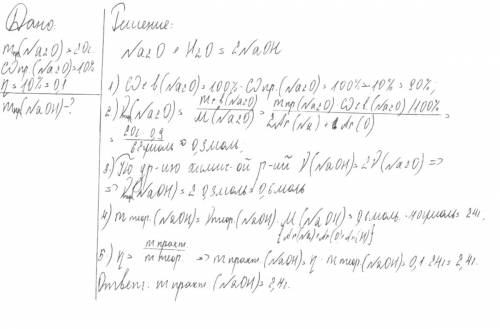 Дано:
mпр(Na2O)=20г.
ωпр.(Na2O)=10%
η=10%=0,1
mпр(NaOH)-?
Решение:
Na2O + H2O = 2NaOH
1) ω ч.в(Na2O)=100%-ωпр.(Na2O)=100%-10%=90%,
2) ν(Na2O)= m ч.в(Na2O) / M(Na2O) = mпр(Na2O)·ω ч.в(Na2O)/100% / 2Ar(Na)+1·Ar(O) =
= 20г·0,9 / 62г/моль = 0,3моль.
3) По ур-ию химич-ой р-ий ν(NaOH)=2ν(Na2O) =>
=> ν(NaOH)=2·0,3моль=0,6моль
4) m теор.(NaOH)=νтеор.(NaOH)·M(NaOH)=0,6моль·40г/моль=24г.
{Ar(Na)+Ar(O)+Ar(H)}
5) η= m практ. / m теор. => m практ.(NaOH)=η·m теор.(NaOH)=0,1·24г=2,4г.
Ответ: m практ.(NaOH)=2,4г.